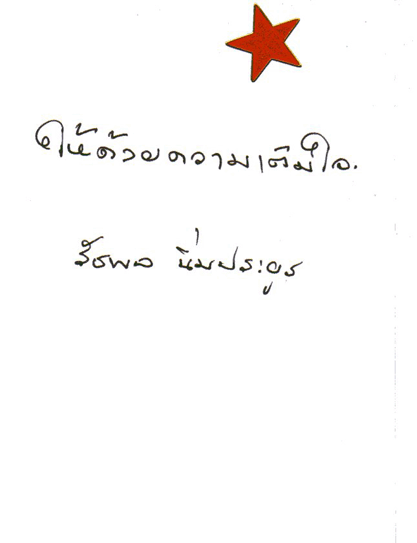 ให้ด้วยความเต็มใจ.
รัชพล นิ่มประยูร